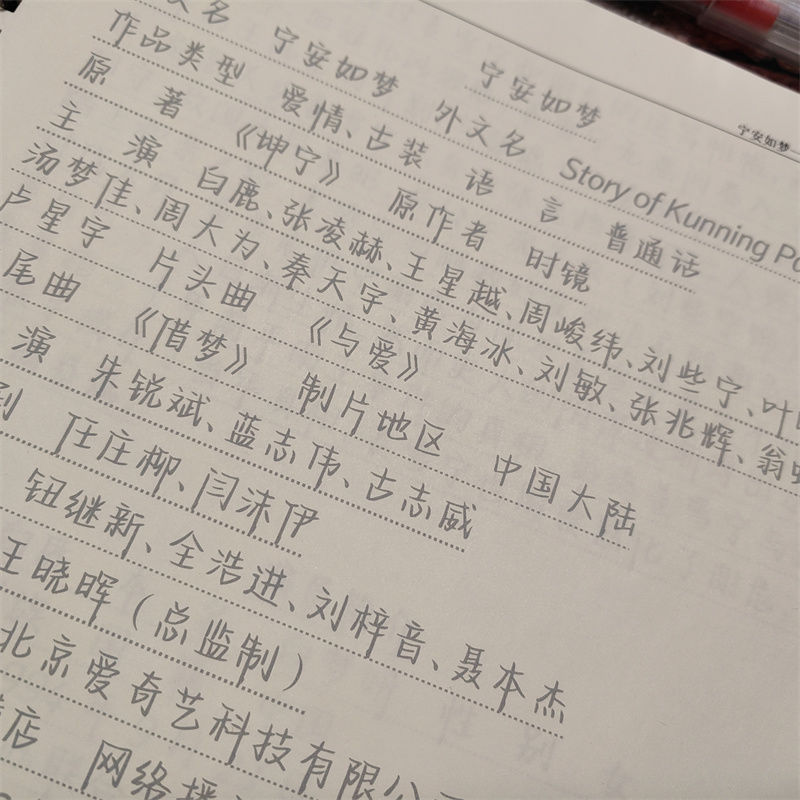 宁安如梦
宁安如梦
文名 宁安如梦 外文名 Story of Kunning
作品类型 爱情、古装 语言 普通话
原著 《坤宁》 原作者 时镜
主演 白鹿、张凌赫、王星越、周峻纬、刘些宁、叶
汤梦佳、周大为、秦天宇、黄海冰、刘敏、张兆辉、翁
卢星宇 片头曲 《与爱》
尾曲 《借梦》 制片地区 中国大陆
演 朱锐斌、蓝志伟、古志威
任庄柳、闫沫伊
钮继新、全浩进、刘梓音、聂本杰
王晓晖（总监制）
北京爱奇艺科技有限公
店 网络播